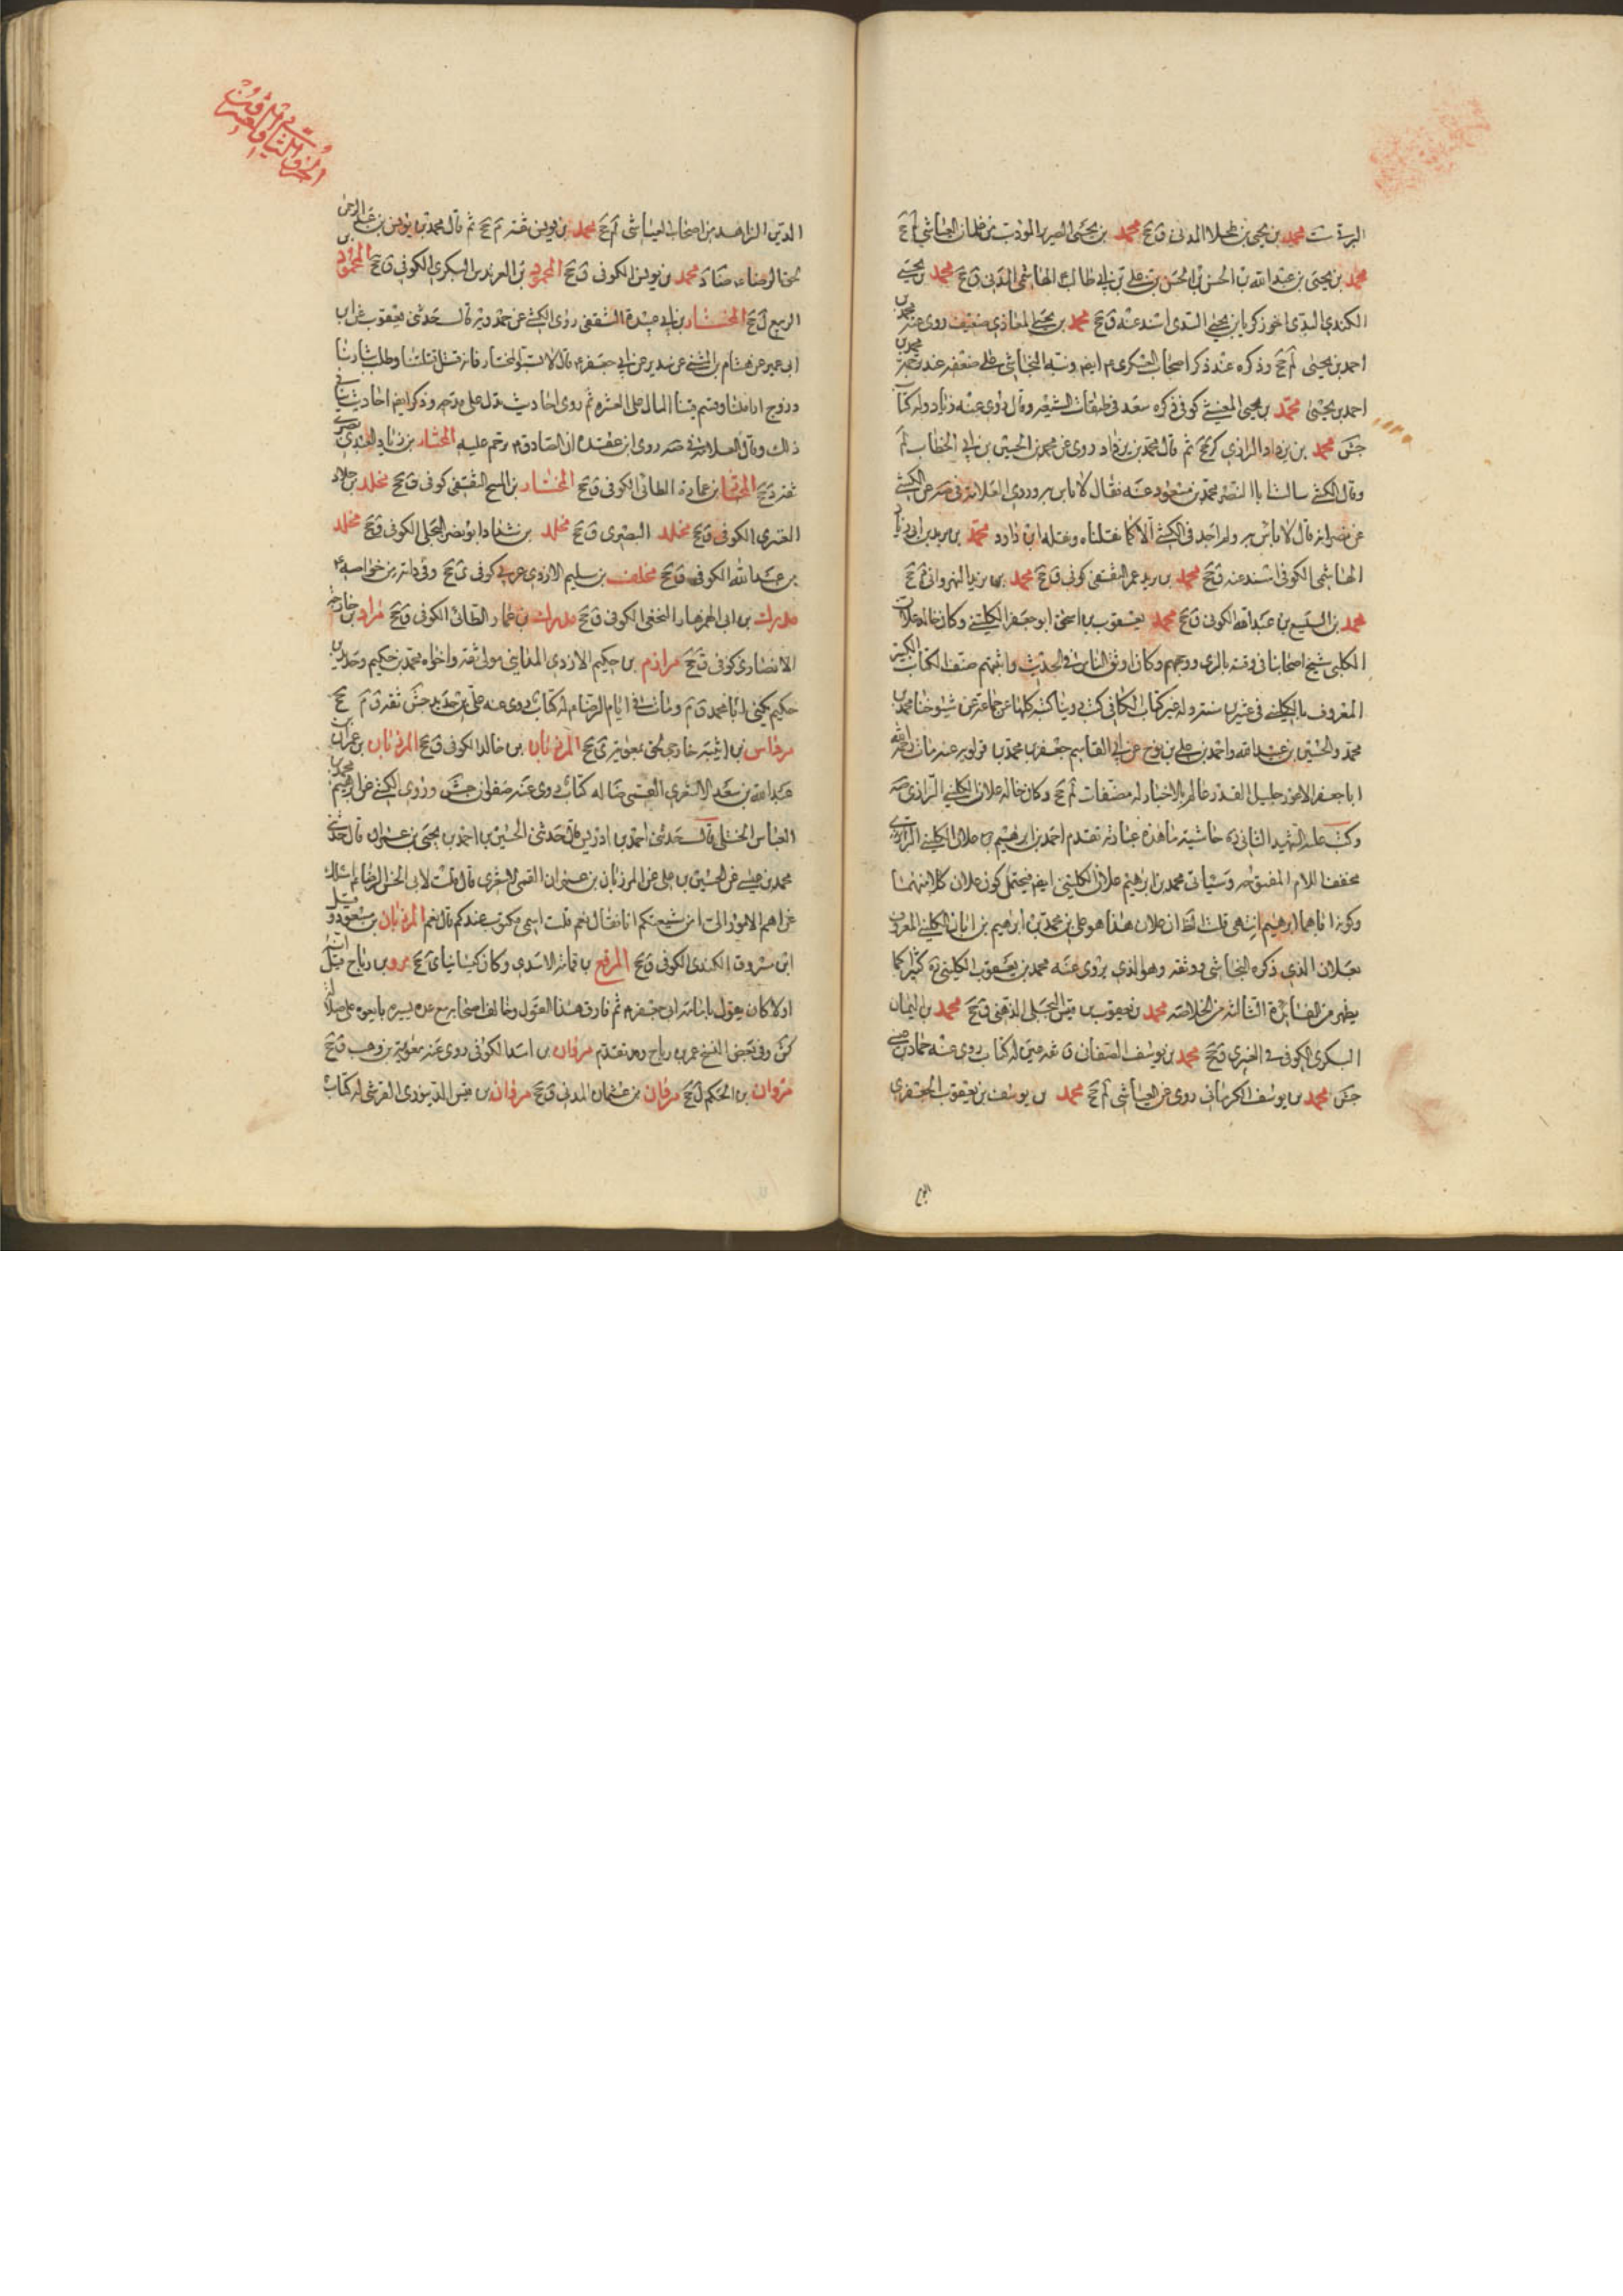 محمد بن يحيى بن المدنى ق جخ محمد بن يحيى الضرير المؤدب من غلمان العياشى لم جخ
محمد بن يحيى بن عبدالله بن الحسن بن الحسن بن على بن ابى طالب الهاشمى المدنى ق جخ محمد بن يحيى
الكندى البدى اخو زكريا بن يحيى البدى اسند عنه ق جخ محمد بن يحيى المعاذى ضعيف روى عنه محمد بن
احمد بن يحيى لم جخ وذكره عند ذكر اصحاب العسكرى م ايضم ونبه النجاشى على ضعفه عند ترجمة محمد بن
احمد بن يحيى محمد بن يحيى كوفى ذكره سعد فى طبقات الشيعة وقال روى عنه زياد وله كتاب
جش محمد بن يزداد الرازى كر جخ ثم قال محمد بن يزداد روى عن محمد بن الحسين بن ابى الخطاب لم
وقال الكشى سالت ابا النضر محمد بن مسعود عنه فقال لا باس به وروى العلامة فى صه عن الكشى
عن نضر انه قال لا باس به ولم اجد فى الكشى الا كما نقلناه ونقله ابن داود محمد بن يزيد بن ابى زياد
الهاشمى الكوفى اسند عنه ق جخ محمد بن يزيد عمر الثقفى كوفى ق جخ محمد بن يزيد النهروانى جخ
محمد بن اليسع بن عبدالله الكوفى ق جخ محمد يعقوب بن اسحق ابو جعفر الكلينى وكان خاله علان
الكلينى شيخ اصحابنا فى وقته بالرى ووجههم وكان اوثق الناس فى الحديث واثبتهم صنف الكتاب الكبير
المعروف بالكلينى فى عشرين سنة وله غير كتاب الكافى كتب روينا كتبه كلها عن جماعة عن شيوخنا محمد بن
محمد والحسين بن عبيدالله واحمد بن على بن نوح عن ابى القاسم جعفر بن محمد بن قولويه عنه مات
ابا جعفر الاعور جليل القدر عالم بالاخبار له مصنفات لم جخ وكان خاله علان الكلينى الرازى صه
وكتب عليه الشهيد الثانى ره حاشية ما هذه عبارته تقدم احمد بن ابراهيم بن علان الكلينى الرازى
مخفف اللام وسياتى محمد بن ابراهيم علان الكلينى ايضم فيحتمل كون علان كلا منهما
وكونه اباهما ابراهيم انتهى قلت الظ ان علان هذا هو على بن محمد بن ابراهيم بن ابان الكلينى المعروف
بعلان الذى ذكره النجاشى ووثقه وهو الذى يروى عنه محمد بن يعقوب الكلينى ره كثيرا كما
يظهر من الفائدة الثالثة من الخلاصة محمد بن يعقوب بن قيس البجلى الدهنى ق جخ محمد بن اليمان
البكرى الكوفى ق جخ محمد بن يوسف الصنعانى ق ثقة عين له كتاب روى عنه حماد بن عيسى
جش محمد بن يوسف الكرمانى روى عن العياشى لم جخ محمد بن يوسف بن يعقوب الجعفرى
الدين الزاهد من اصحاب العياشى لم جخ محمد بن يونس ثقة م جخ ثم قال محمد بن يونس بن عبدالرحمن
محمد بن يونس الكوفى ق جخ بن العرندس البكرى الكوفى ق جخ المحمود بن
الربيع ل جخ المختار بن ابى عبيدة الثقفى روى الكشى عن حمدويه قال حدثنى يعقوب عن ابن
ابى عمير عن هشام بن المثنى عن سدير عن ابى جعفر م قال لا تسبوا المختار فانه قتل قتلتنا وطلب بثارنا
وزوج اراملنا وقسم فينا المال على العسرة ثم روى احاديث تدل على مدحه وذكر ايضم احاديث
ذلك وقال العلامة فى صه روى ابن عقدة ان الصادق م ترحم عليه المختار بن زياد العبدى بصرى
ثقة د جخ المختار بن عمارة الطائى الكوفى ق جخ المختار بن الثقفى كوفى ق جخ مخلد بن خلاد
العنزى الكوفى ق جخ مخلد البصرى ق جخ مخلد بن شداد ابو نصر البجلى الكوفى ق جخ مخلد
بن عبدالله الكوفى ق جخ مخنف بن سليم الازدى عربى كوفى ى جخ وفى د انه من خواصه ع
مدرك بن ابى الهزهاز النخعى الكوفى ق جخ مدرك بن عمارة الطائى الكوفى ق جخ مراد بن خارجة
الانصارى كوفى ق جخ مرازم بن حكيم الازدى المداينى مولى ثقة واخواه محمد بن حكيم وحديد بن
حكيم يكنى ابا محمد ق م ومات فى ايام الرضا م له كتاب روى عنه على بن حديد جش ثقة ق م جخ
مرداس بن ادية خارجى لحق بمعوية ى جخ المرزبان بن خالد الكوفى ق جخ المرزبان بن عمران بن
عبدالله بن سعد الاشعرى القمى ضا له كتاب روى عنه صفوان جش وروى الكشى عن ابراهيم بن محمد بن
العباس الختلى قال حدثنى احمد بن ادريس قال حدثنى الحسين بن احمد بن يحيى بن عمران قال حدثنى
محمد بن عيسى عن الحسين بن على عن المرزبان بن عمران القمى الاشعرى قال قلت لابى الحسن الرضا م اسئلك
عن اهم الامور الى امن شيعتكم انا فقال نعم قلت اسمى مكتوب عندكم قال نعم المرزبان بن مسعود وقيل
ابن مسروق الكندى الكوفى ق جخ المرقع بن قمامة الاسدى وكان كيسانيا ى جخ مرو بن رياح قيل انه
اولا كان يقول بامامة ابى جعفر م ثم فارق هذا القول وخالف اصحابه مع عدة يسيرة بايعوه على ضلالته
كش وفى بعض النسخ عمر بن رياح وقد تقدم مروان بن اسد الكوفى روى عنه معوية بن وهب ق جخ
مروان بن الحكم ل جخ مروان بن عثمان المدنى ق جخ مروان بن قيس الدينورى القرشى له كتاب